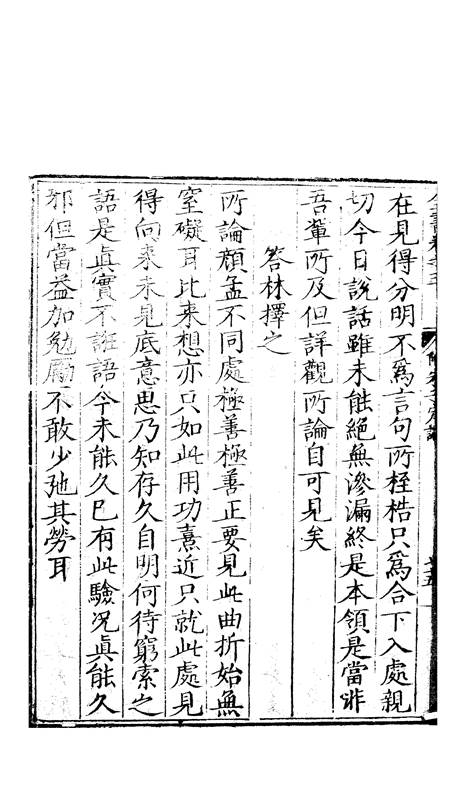 在見得分明不爲言句所桎梏只爲合下入處親
切今日說話雖未能絶無滲漏終是本領是當非
吾輩所及但詳觀所論自可見矣
答林擇之
所論顔孟不同處極善極善正要見此曲折始無
窒礙耳比来想亦只如此用功熹近只就此處見
得向来未見底意思乃知存久自明何待窮索之
語是眞實不誑語今未能久已有此驗况眞能久
邪但當益加勉勵不敢少弛其勞耳